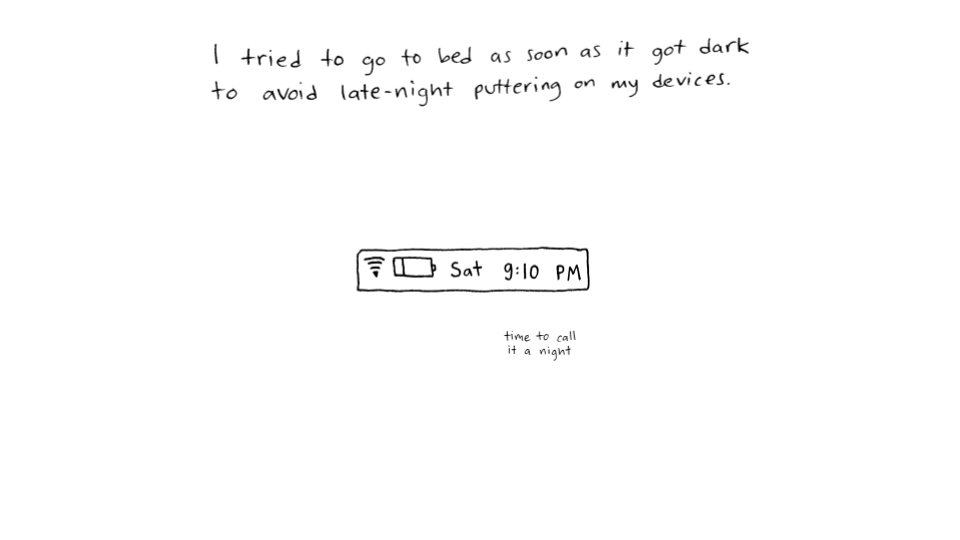 I tried to go to bed as soon as it got dark
to avoid late-night puttering on my devices.
Sat 9:10 PM
time to call
it a night